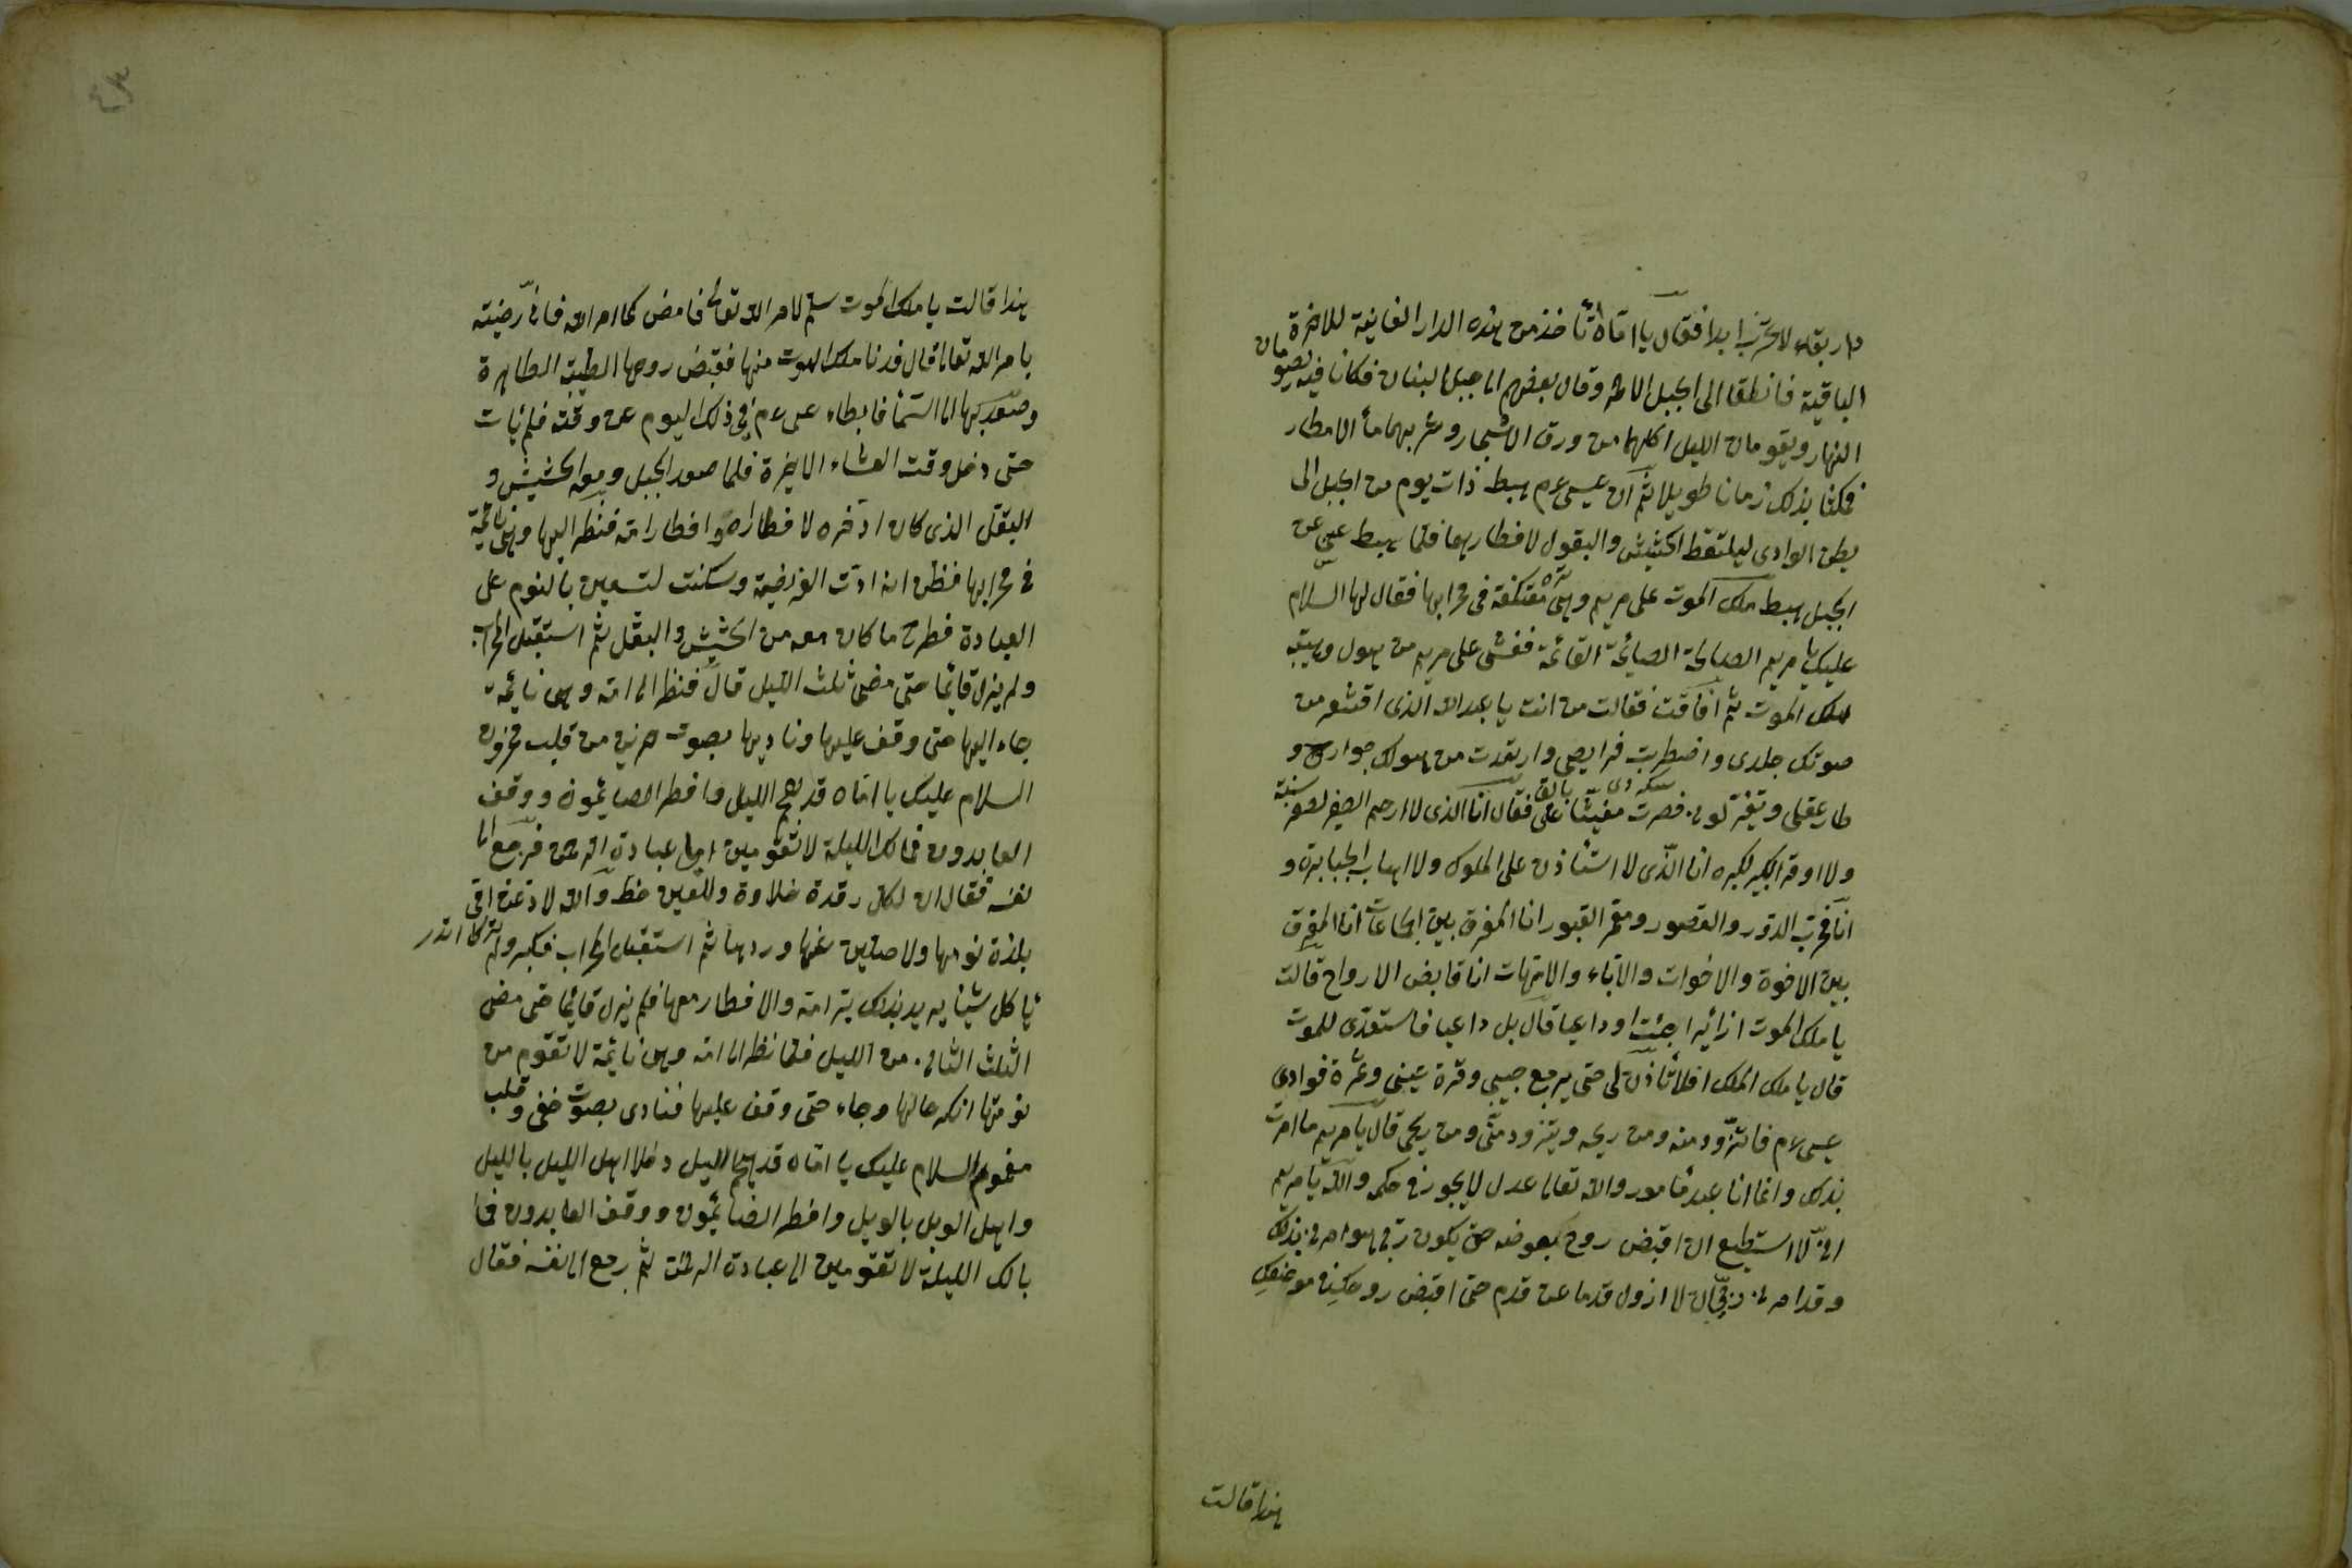 دار بقاء لا تخرب ابدا فقال يا اماه تأخذ من هذه الدار الفانية للاخرة
الباقية فانطلقا الى الجبل وقال بعضهم الى جبل لبنان فكانا فيه يصومان
النهار ويقومان الليل اكلهما من ورق الاشجار وشربهما ماء الامطار
فمكثا بذلك زمانا طويلا ثم ان عيسى عم هبط ذات يوم من الجبل الى
بطن الوادى ليلتقط الحشيش والبقول لافطارهما فلما هبط عيسى عن
الجبل هبط ملك الموت على مريم وهى معتكفة فى محرابها فقال لها السلام
عليك يا مريم الصالحة الصائمة القائمة فغشى على مريم من هول وهيبة
ملك الموت ثم افاقت فقالت من انت يا عبد الله الذى اقشعر من
صوتك جلدى واضطربت فرايصى وارتعدت من هولك جوارحى و
طار عقلى وتغير لونى فصرت مغشيا على فقال انا الذى لا ارحم الصغير لصغر سنه
ولا اوقر الكبير لكبره انا الذى لا استأذن على الملوك ولا اهاب الجبابرة و
انا مخرب الدور والقصور ومعمر القبور انا المفرق بين الجماعات انا المفرق
بين الاخوة والاخوات والاباء والامهات انا قابض الارواح قالت
يا ملك الموت ازائرا جئت او داعيا قال بل داعيا فاستعدى للموت
قال يا ملك الملك افلا تأذن لى حتى يرجع حبيبى وقرة عينى وثمرة فوادى
عيسى عم فاتزود منه ومن ريحه ويتزود منى ومن ريحى قال يا مريم ما امرت
بذلك وانما انا عبد مأمور والله تعالى عدل لا يجوز فى حكمه والله يا مريم
انى لا استطيع ان اقبض روح بعوضة حتى يكون ربى هو امرنى بذلك
وقد امرنى ربى ان لا ازول قدما عن قدم حتى اقبض روحك فى موضعك
هذا قالت
هذا قالت يا ملك الموت سلم لامر الله تعالى فامض كما امر الله فانى رضيته
بامر الله تعالى قال فدنا ملك الموت منها فقبض روحها الطيب الطاهرة
وصعد بها الى السماء فابطاء عيسى عم فى ذلك اليوم عن وقته فلم يأت
حتى دخل وقت العشاء الاخيرة فلما صعد الجبل ومعه الحشيش و
البقل الذى كان ادخره لافطاره وافطار امه فنظر اليها وهى نائمة
فى محرابها فظن انه ادت الفريضة وسكنت لتستعين بالنوم على
العبادة فطرح ما كان معه من الحشيش والبقل ثم استقبل المحراب
ولم يزل قائما حتى مضى ثلث الليل قال فنظر الى امه وهى نائمة
جاء اليها حتى وقف عليها وناديها بصوت حزين من قلب محزون
السلام عليك يا اماه قد هجم الليل وافطر الصائمون ووقف
العابدون فمالك الليلة لا تقومين الى عبادة الرحمن فرجع الى
نفسه فقال ان لكل رقدة حلاوة وللعين حظ والله لا دعن امى
بلذة نومها ولاصلين عنها وردها ثم استقبل المحراب فكبر ولم
يأكل شيئا يريد بذلك بر امه والافطار معها فلم يزل قائما حتى مضى
الثلث الثانى من الليل فلما نظر الى امه وهى نائمة لا تقوم من
نومتها انكر حالها وجاء حتى وقف عليها فنادى بصوت خفى وقلب
مغموم السلام عليك يا اماه قد هجم الليل دخلا اهل الليل بالليل
واهل الويل بالويل وافطر الصائمون ووقف العابدون فما
بالك الليلة لا تقومين الى عبادة الرحمن ثم رجع الى نفسه فقال